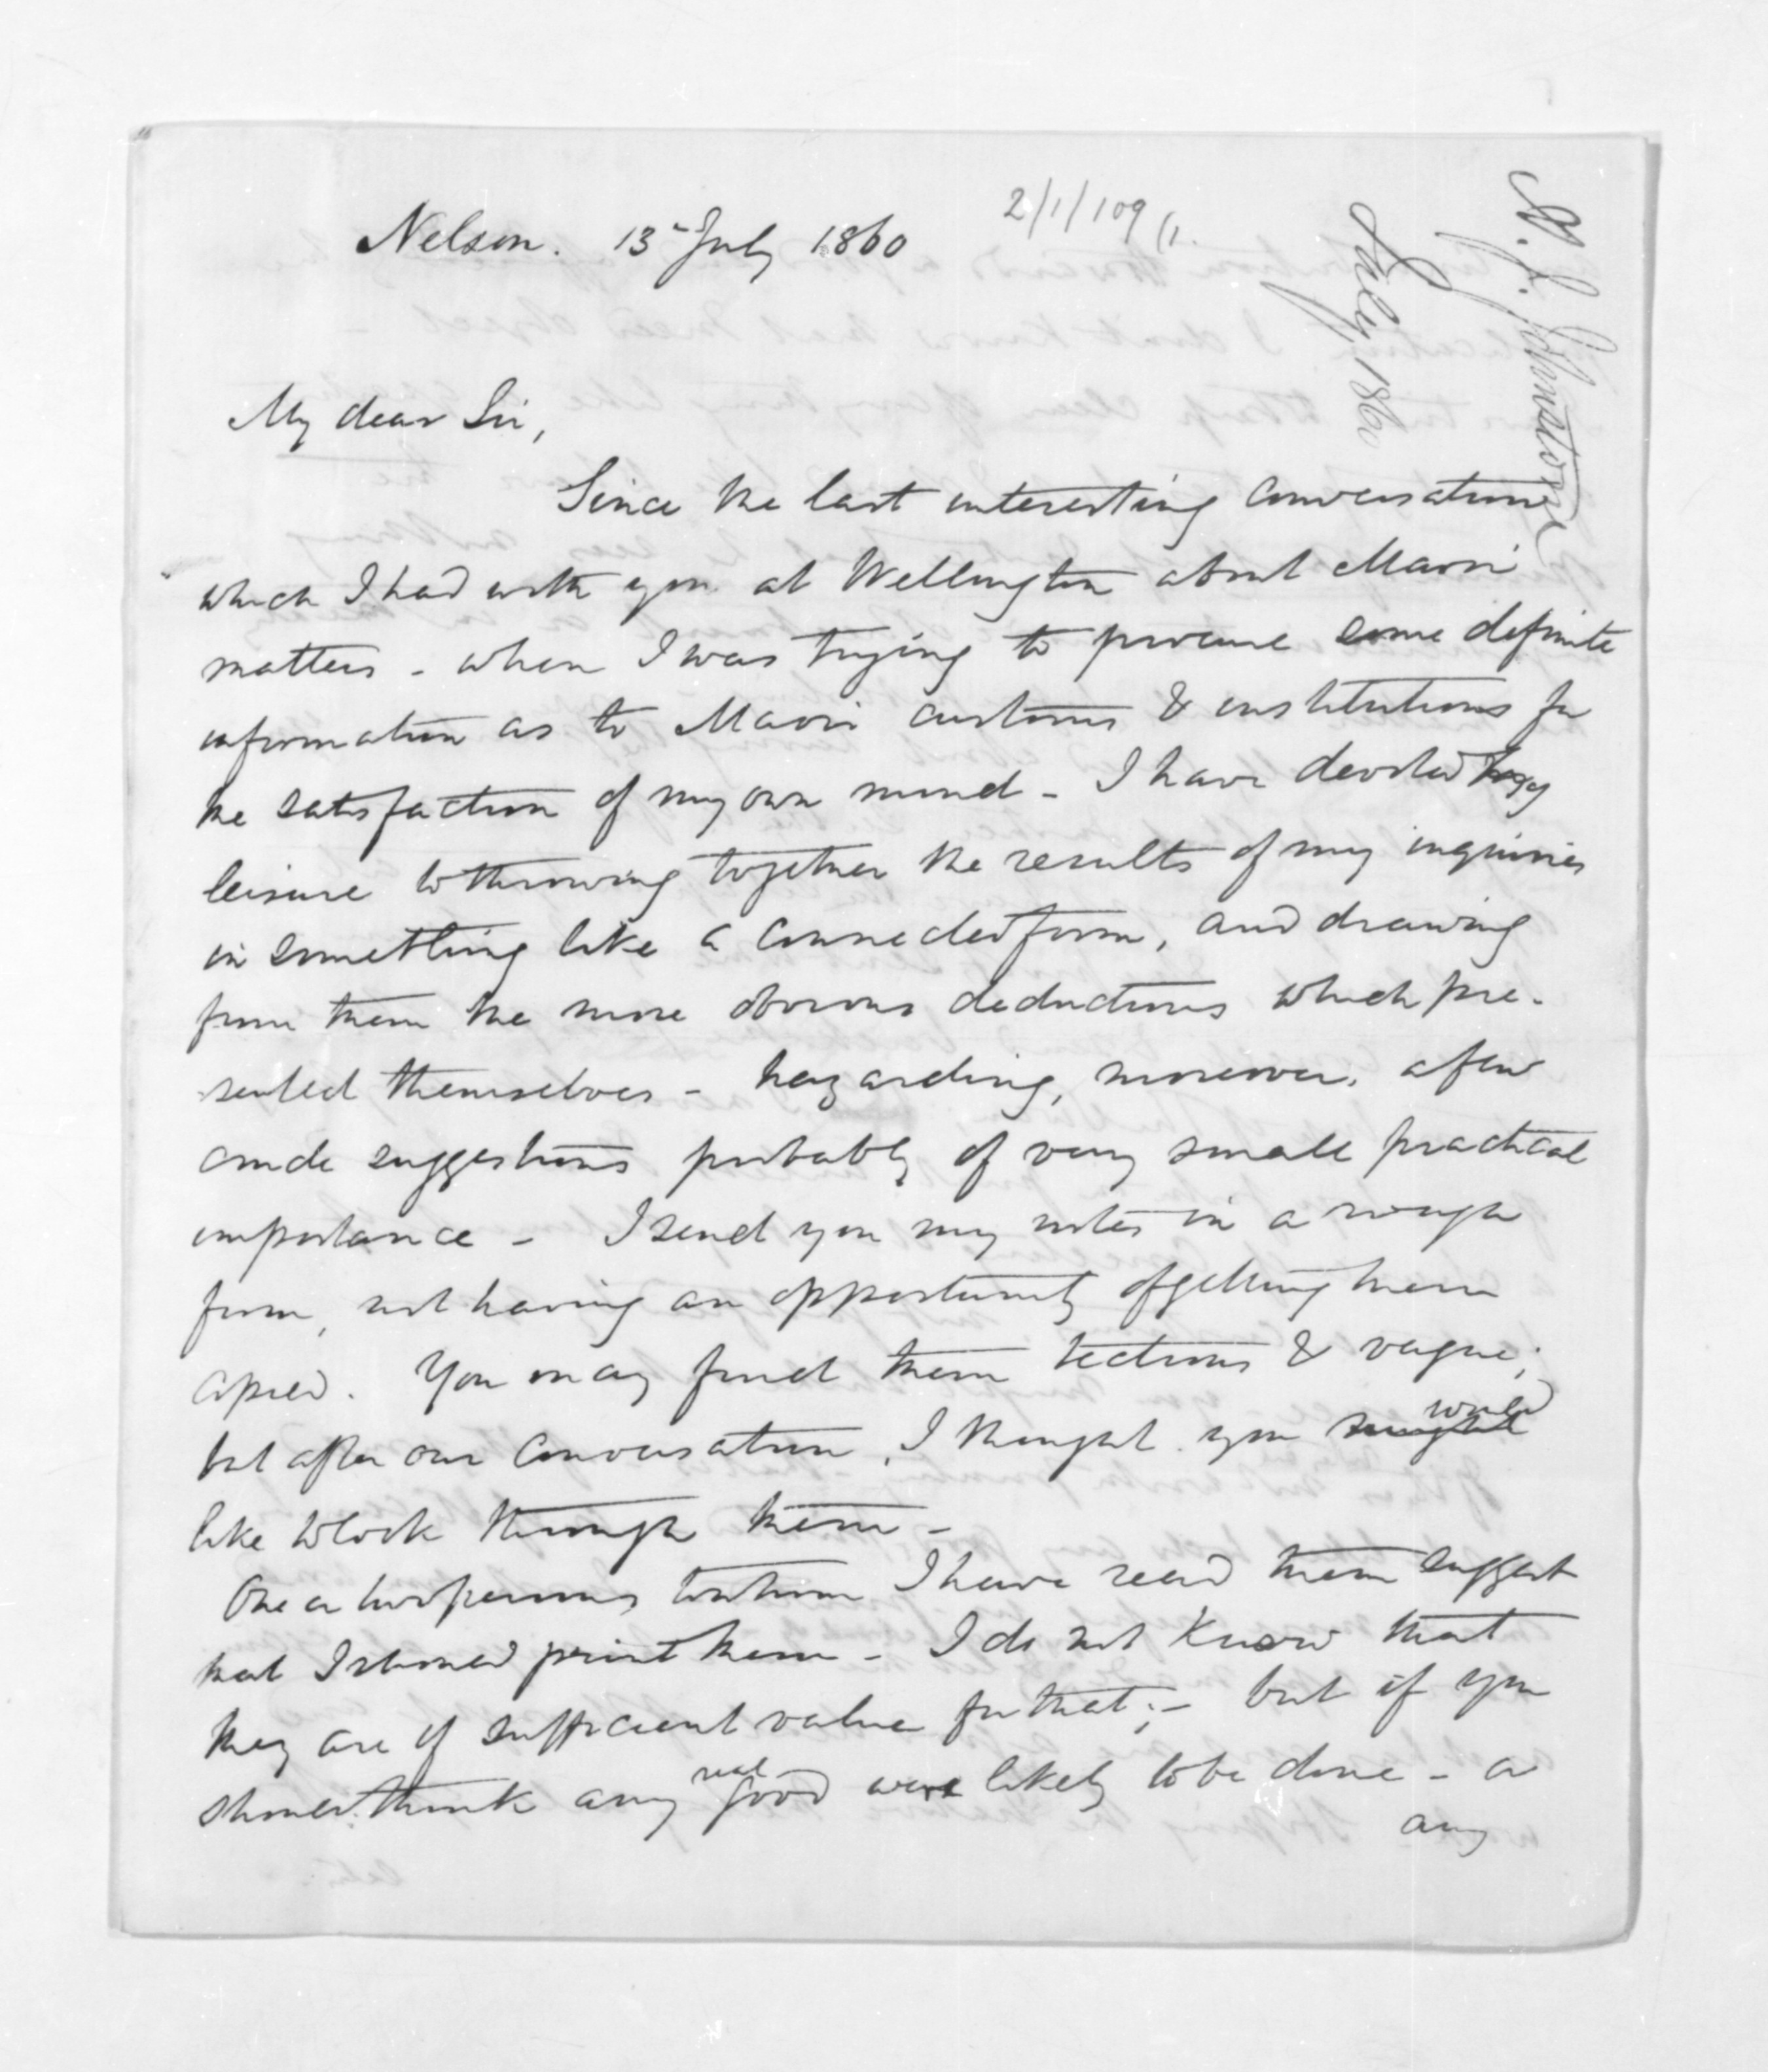 Nelson. 13 July 1860
2/1/109 (1.
July 1860
My dear Sir,
Since the last interesting conversation
which I had with you at Wellington about Maori
matters - when I was trying to procure some definite
information as to Maori customs & institutions for
the satisfaction of my own mind - I have devoted my
leisure to throwing together the results of my inquiries
in something like a connected form, and drawing
from them the more obvious deductions which pre-
sented themselves - hazarding, moreover, a few
crude suggestions probably of very small practical
importance - I send you my notes in a rough
form, not having an opportunity of getting them
copied. You may find them tedious & vague;
but after our conversation, I thought you would
like to look through them -
One or two persons to whom I have read them suggest
that I should print them - I do not know that
they are of sufficient value for that; - but if you
should think any real good were likely to be done - or
any